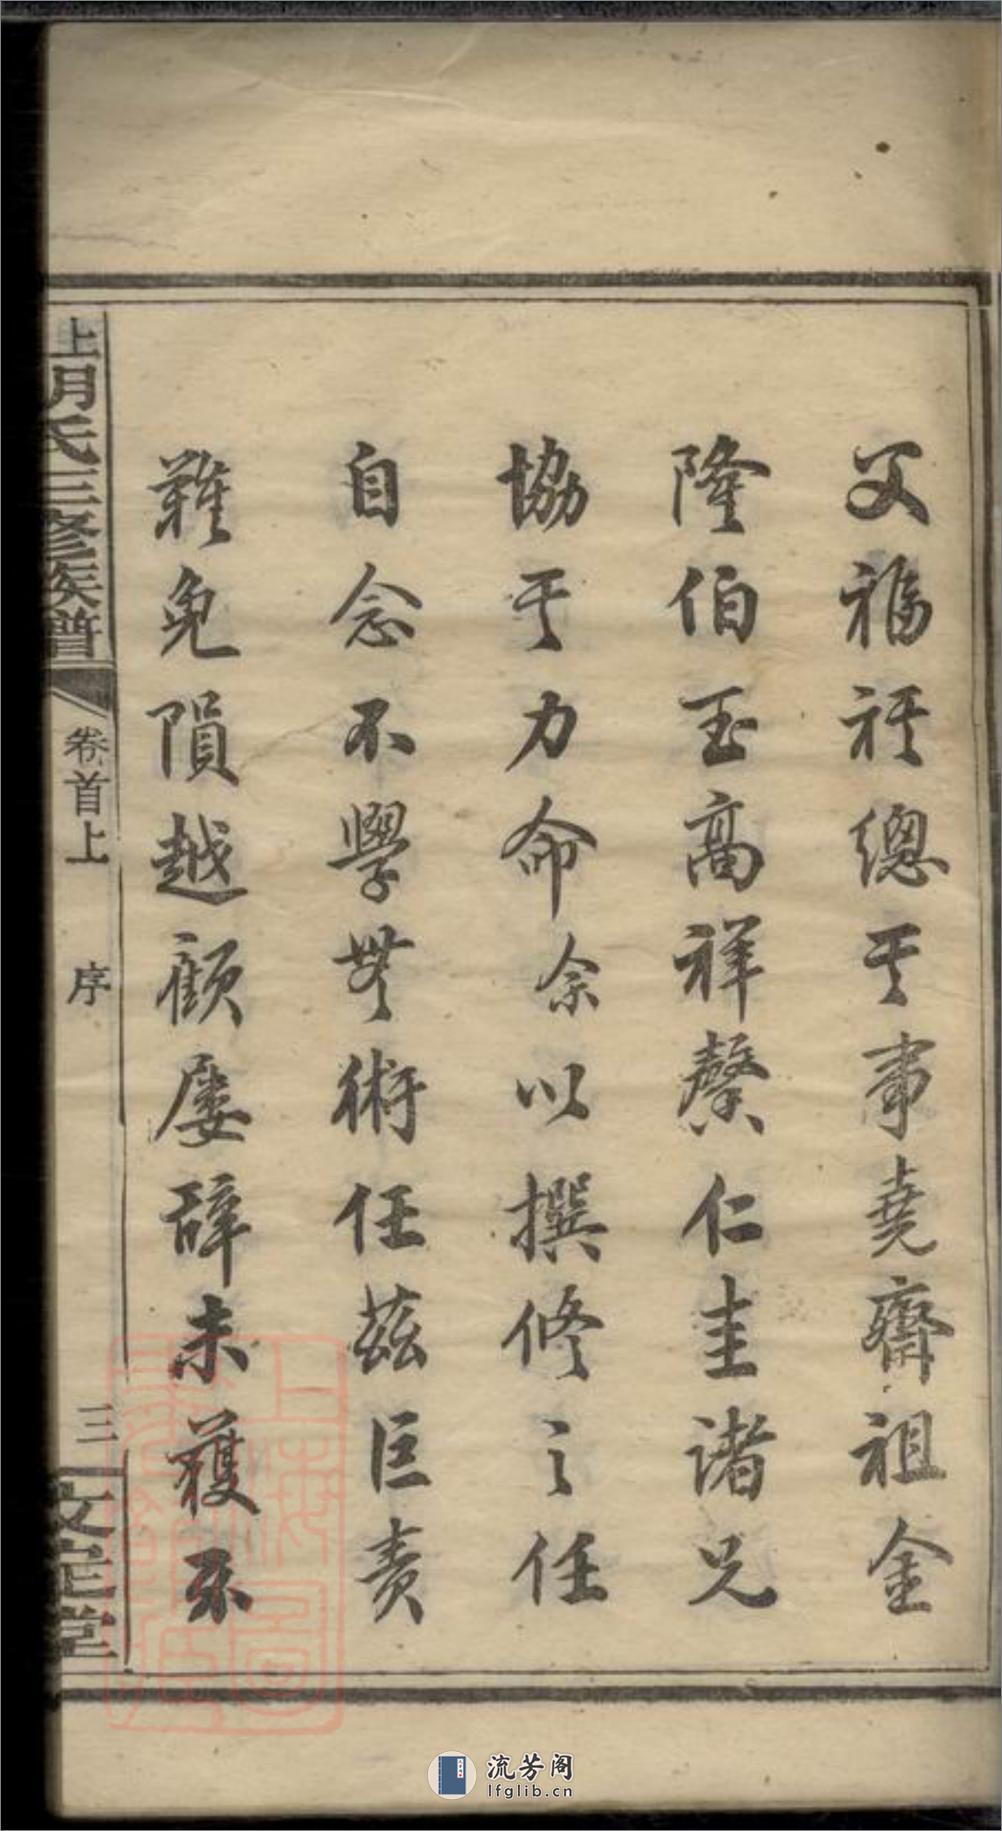 父福祥總其事堯齋祖金
隆伯玉高祥馨仁圭諸兄
協其力命余以撰修之任
自念不學無術任茲巨責
難免隕越顧屢辭未獲不
上胡氏三修族譜
卷首上
序
三
文定堂
流芳阁
lfglib.cn